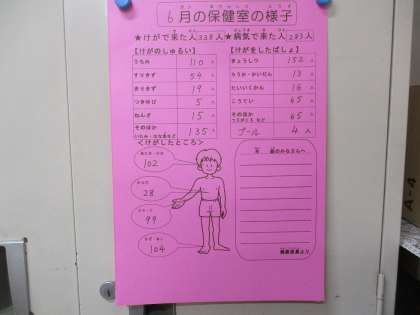 6月の保健室の様子
★けがで来た人338人★病気で来た人283人
【けがのしゅるい】
うちみ 110人
すりきず 54人
きりきず 19人
つきゆび 5人
ねんざ 15人
そのほか 135人
【けがをしたばしょ】
きょうしつ 152人
ろうか・かいだん 13人
たいいくかん 16人
こうてい 65人
そのほか 65人
プール 4人
<けがしたところ>
102
28
99
104